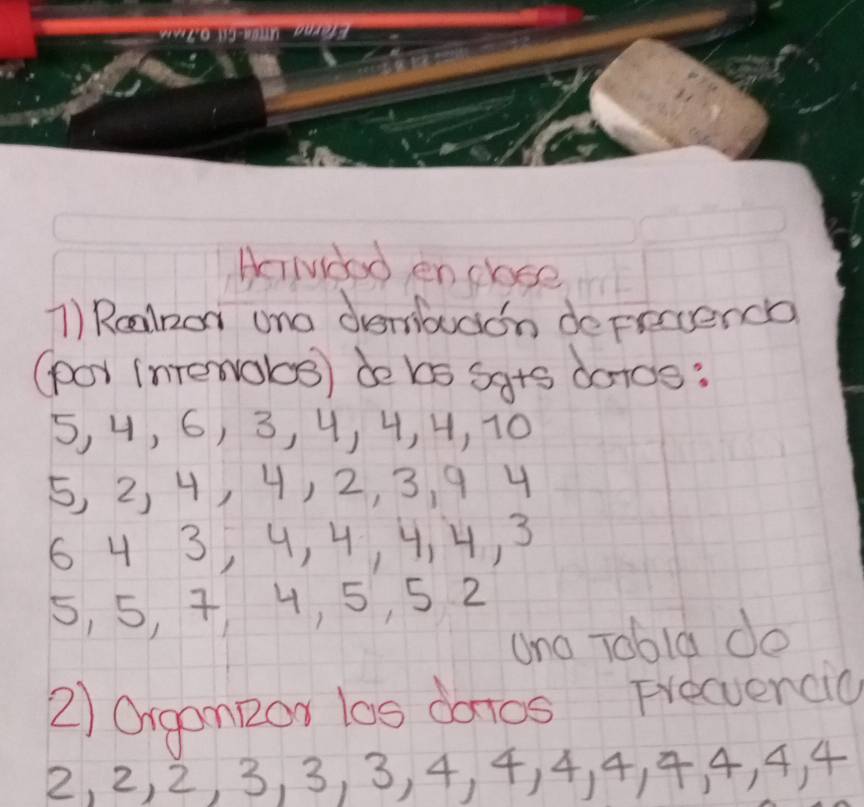 Actividad en clase
1) Realizar una distribución de Frecuencia
(por intervalos) de los sgts datos:
5, 4, 6, 3, 4, 4, 4, 10
5, 2, 4, 4, 2, 3, 9 4
6 4 3, 4, 4, 4, 4, 3
5, 5, 7, 4, 5, 5 2
una Tabla de
2) Organizar los datos Frecuencia
2, 2, 2, 3, 3, 3, 4, 4, 4, 4, 4, 4, 4, 4